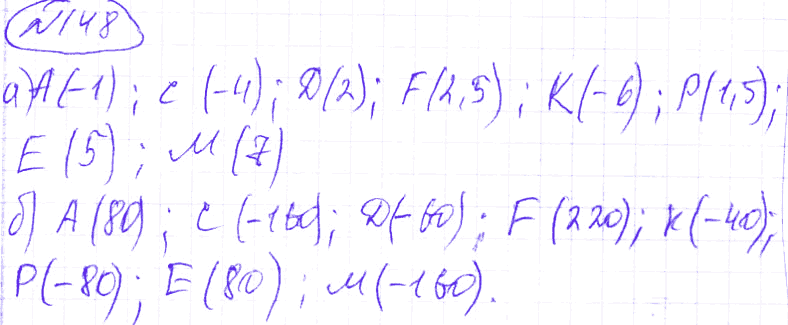 №148
а) А(-1); С (-4); D(2); F(2,5); K(-6); P(1,5);
E (5); M(7)
б) А(80); С (-160); D(-60); F (220); K(-40);
P(-80); E(80); M(-160).